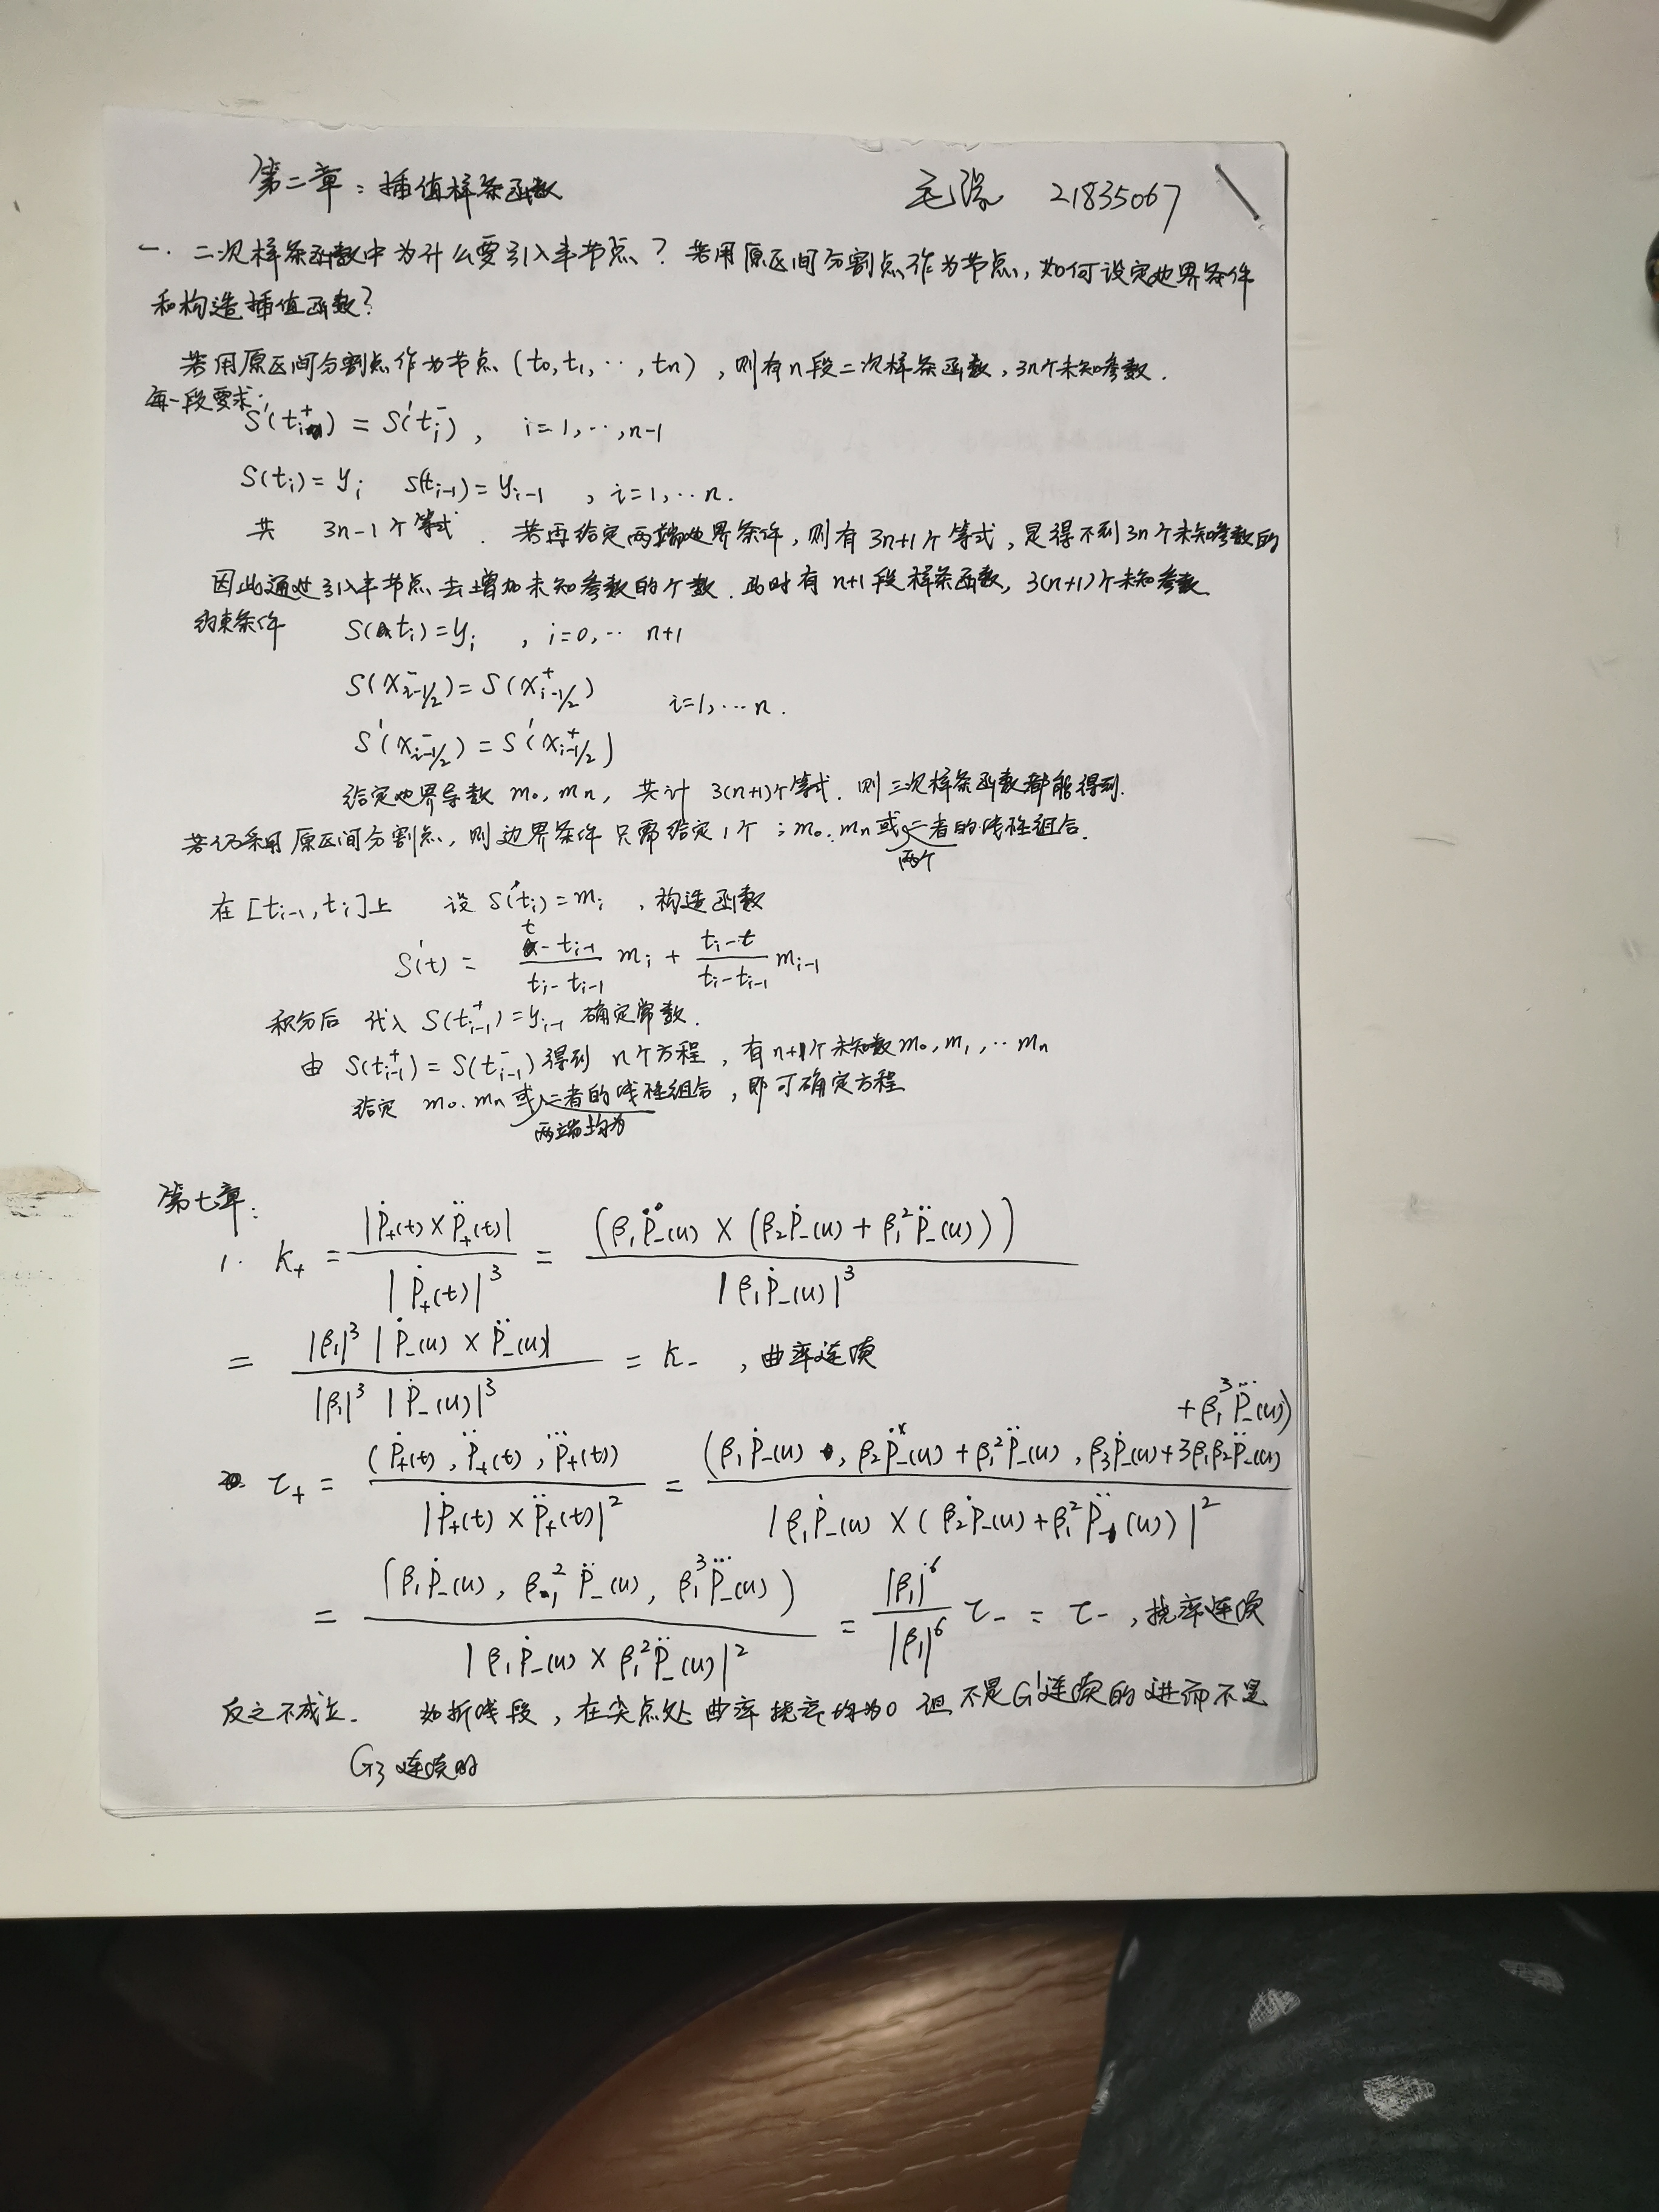 第二章：插值样条函数
毛 21835067
一. 二次样条函数中为什么要引入半节点？若用原区间分割点作为节点，如何设定边界条件
和构造插值函数？
若用原区间分割点作为节点 (t₀, t₁, ‥, tₙ)，则有n段二次样条函数，3n个未知参数.
每一段要求:
S'(tᵢ⁺) = S'(tᵢ⁻), i=1, ‥, n-1
S(tᵢ) = yᵢ S(tᵢ₋₁) = yᵢ₋₁ , i=1, ‥ n.
共 3n-1个等式. 若再给定两端边界条件，则有3n+1个等式，是得不到3n个未知参数的
因此通过引入半节点去增加未知参数的个数. 此时有n+1段样条函数，3(n+1)个未知参数
约束条件 S(tᵢ) = yᵢ , i=0, ‥ n+1
S(x⁻ᵢ₋₁/₂) = S(x⁺ᵢ₋₁/₂)
i=1, ⋯ n.
S'(x⁻ᵢ₋₁/₂) = S'(x⁺ᵢ₋₁/₂)
给定边界导数 m₀, mₙ, 共计 3(n+1)个等式. 则二次样条函数都能得到.
若仍采用原区间分割点，则边界条件只需给定1个：m₀. mₙ或二者的线性组合.
两个
在[tᵢ₋₁, tᵢ]上 设 S'(tᵢ) = mᵢ , 构造函数
S'(t) = \frac{t - tᵢ₋₁}{tᵢ - tᵢ₋₁} mᵢ + \frac{tᵢ - t}{tᵢ - tᵢ₋₁} mᵢ₋₁
积分后 代入 S(tᵢ₋₁⁺) = yᵢ₋₁ 确定常数.
由 S(tᵢ₋₁⁺) = S(tᵢ₋₁⁻) 得到 n个方程，有n+1个未知数 m₀, m₁, ‥ mₙ
给定 m₀. mₙ或二者的线性组合，即可确定方程
两端均为
第七章:
1. k₊ = \frac{|Ṗ₊(t) × P̈₊(t)|}{|Ṗ₊(t)|³} = \frac{(β₁Ṗ₋(u) × (β₂Ṗ₋(u) + β₁²P̈₋(u)))}{|β₁Ṗ₋(u)|³}
= \frac{|β₁|³ |Ṗ₋(u) × P̈₋(u)|}{|β₁|³ |Ṗ₋(u)|³} = k₋ , 曲率连续
τ₊ = \frac{(Ṗ₊(t), P̈₊(t), P⃛₊(t))}{|Ṗ₊(t) × P̈₊(t)|²} = \frac{(β₁Ṗ₋(u), β₂Ṗ₋(u) + β₁²P̈₋(u), β₃Ṗ₋(u) + 3β₁β₂P̈₋(u) + β₁³P⃛₋(u))}{|β₁Ṗ₋(u) × (β₂Ṗ₋(u) + β₁²P̈₋(u))|²}
= \frac{(β₁Ṗ₋(u), β₁²P̈₋(u), β₁³P⃛₋(u))}{|β₁Ṗ₋(u) × β₁²P̈₋(u)|²} = \frac{|β₁|⁶}{|β₁|⁶} τ₋ = τ₋ , 挠率连续
反之不成立. 如折线段，在尖点处曲率挠率均为0 但不是G¹连续的 进而不是
G₃连续的